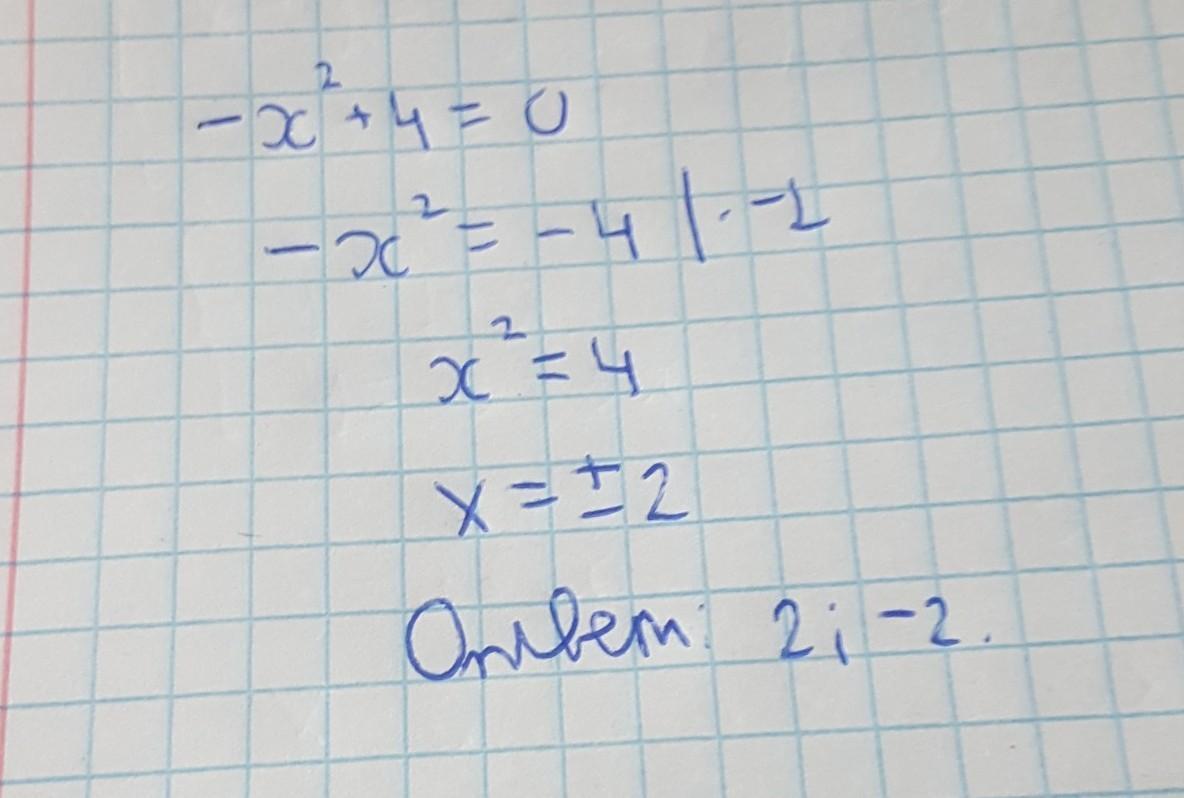 -x² + 4 = 0
-x² = -4 | · -1
x² = 4
x = ± 2
Ответ: 2; -2.